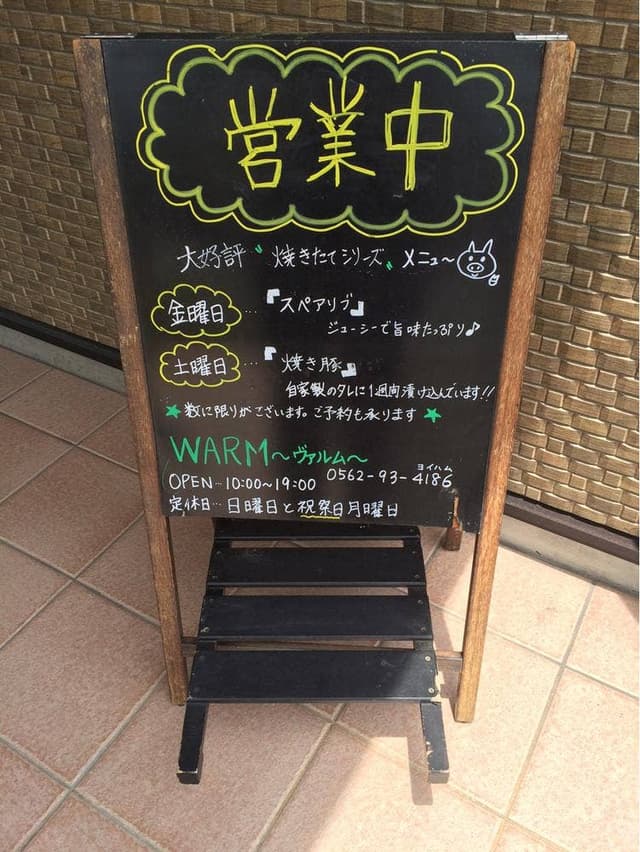 営業中
大好評〝焼きたてシリーズ〟メニュ〜
金曜日…『スペアリブ』
ジューシーで旨味たっぷり♪
土曜日…『焼き豚』
自家製のタレに1週間漬け込んでいます!!
★数に限りがございます。ご予約も承ります★
WARM〜ヴァルム〜
ヨイハム
OPEN…10:00〜19:00 0562-93-4186
定休日…日曜日と祝祭日月曜日